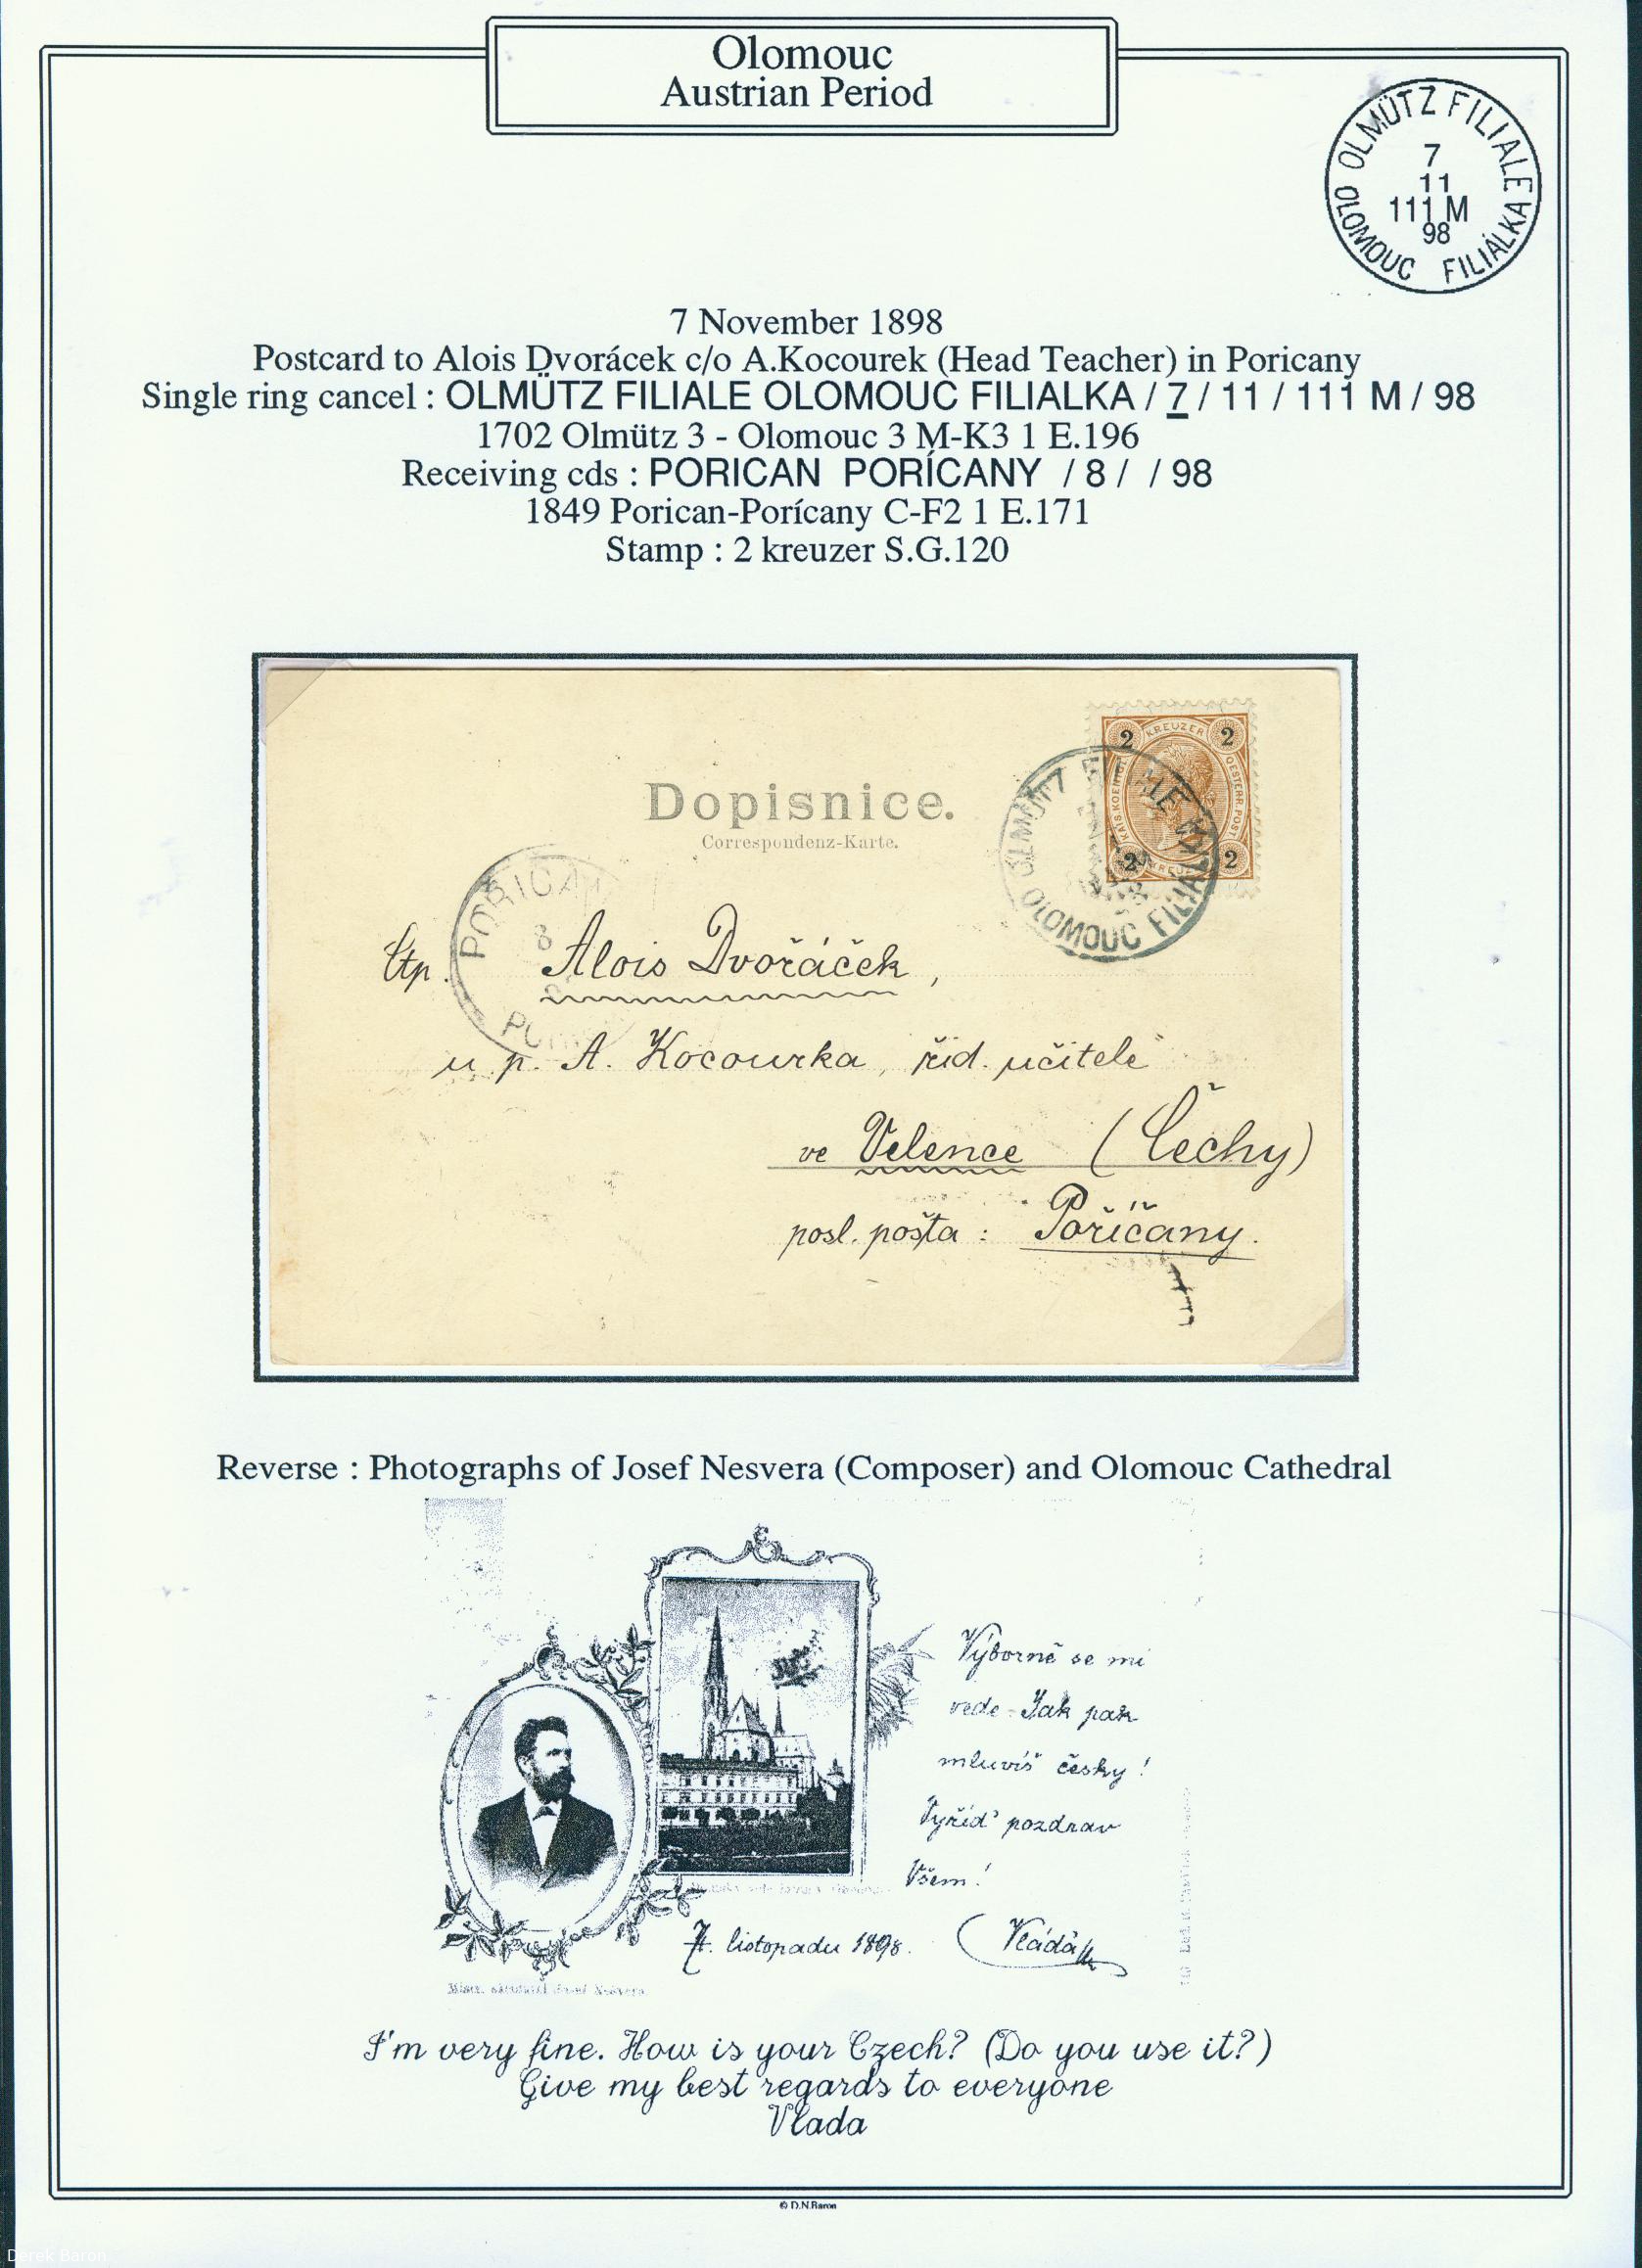 Olomouc
Austrian Period
OLMÜTZ FILIALE
7
11
111 M
98
OLOMOUC FILIÁLKA
7 November 1898
Postcard to Alois Dvorácek c/o A.Kocourek (Head Teacher) in Poricany
Single ring cancel : OLMÜTZ FILIALE OLOMOUC FILIALKA / 7 / 11 / 111 M / 98
1702 Olmütz 3 - Olomouc 3 M-K3 1 E.196
Receiving cds : PORICAN PORÍCANY / 8 / / 98
1849 Porican-Porícany C-F2 1 E.171
Stamp : 2 kreuzer S.G.120
2 KREUZER 2
KAIS. KOENIGL. OESTERR. POST.
2 2
OLMÜTZ
OLOMOUC FILIALKA
Dopisnice.
Correspondenz-Karte.
PORICAN
8
Ctp. Alois Dvořáček,
u p. A. Kocourka, říd. učitele
ve Velence (Čechy)
posl. pošta : Poříčany.
Reverse : Photographs of Josef Nesvera (Composer) and Olomouc Cathedral
Výborně se mi
vede. Jak pak
mluvíš česky!
Vyřiď pozdrav
Všem!
7. listopadu 1898. Vláďa
Josef Nešvera
I'm very fine. How is your Czech? (Do you use it?)
Give my best regards to everyone
Vlada
© D.N.Baron
Derek Baron